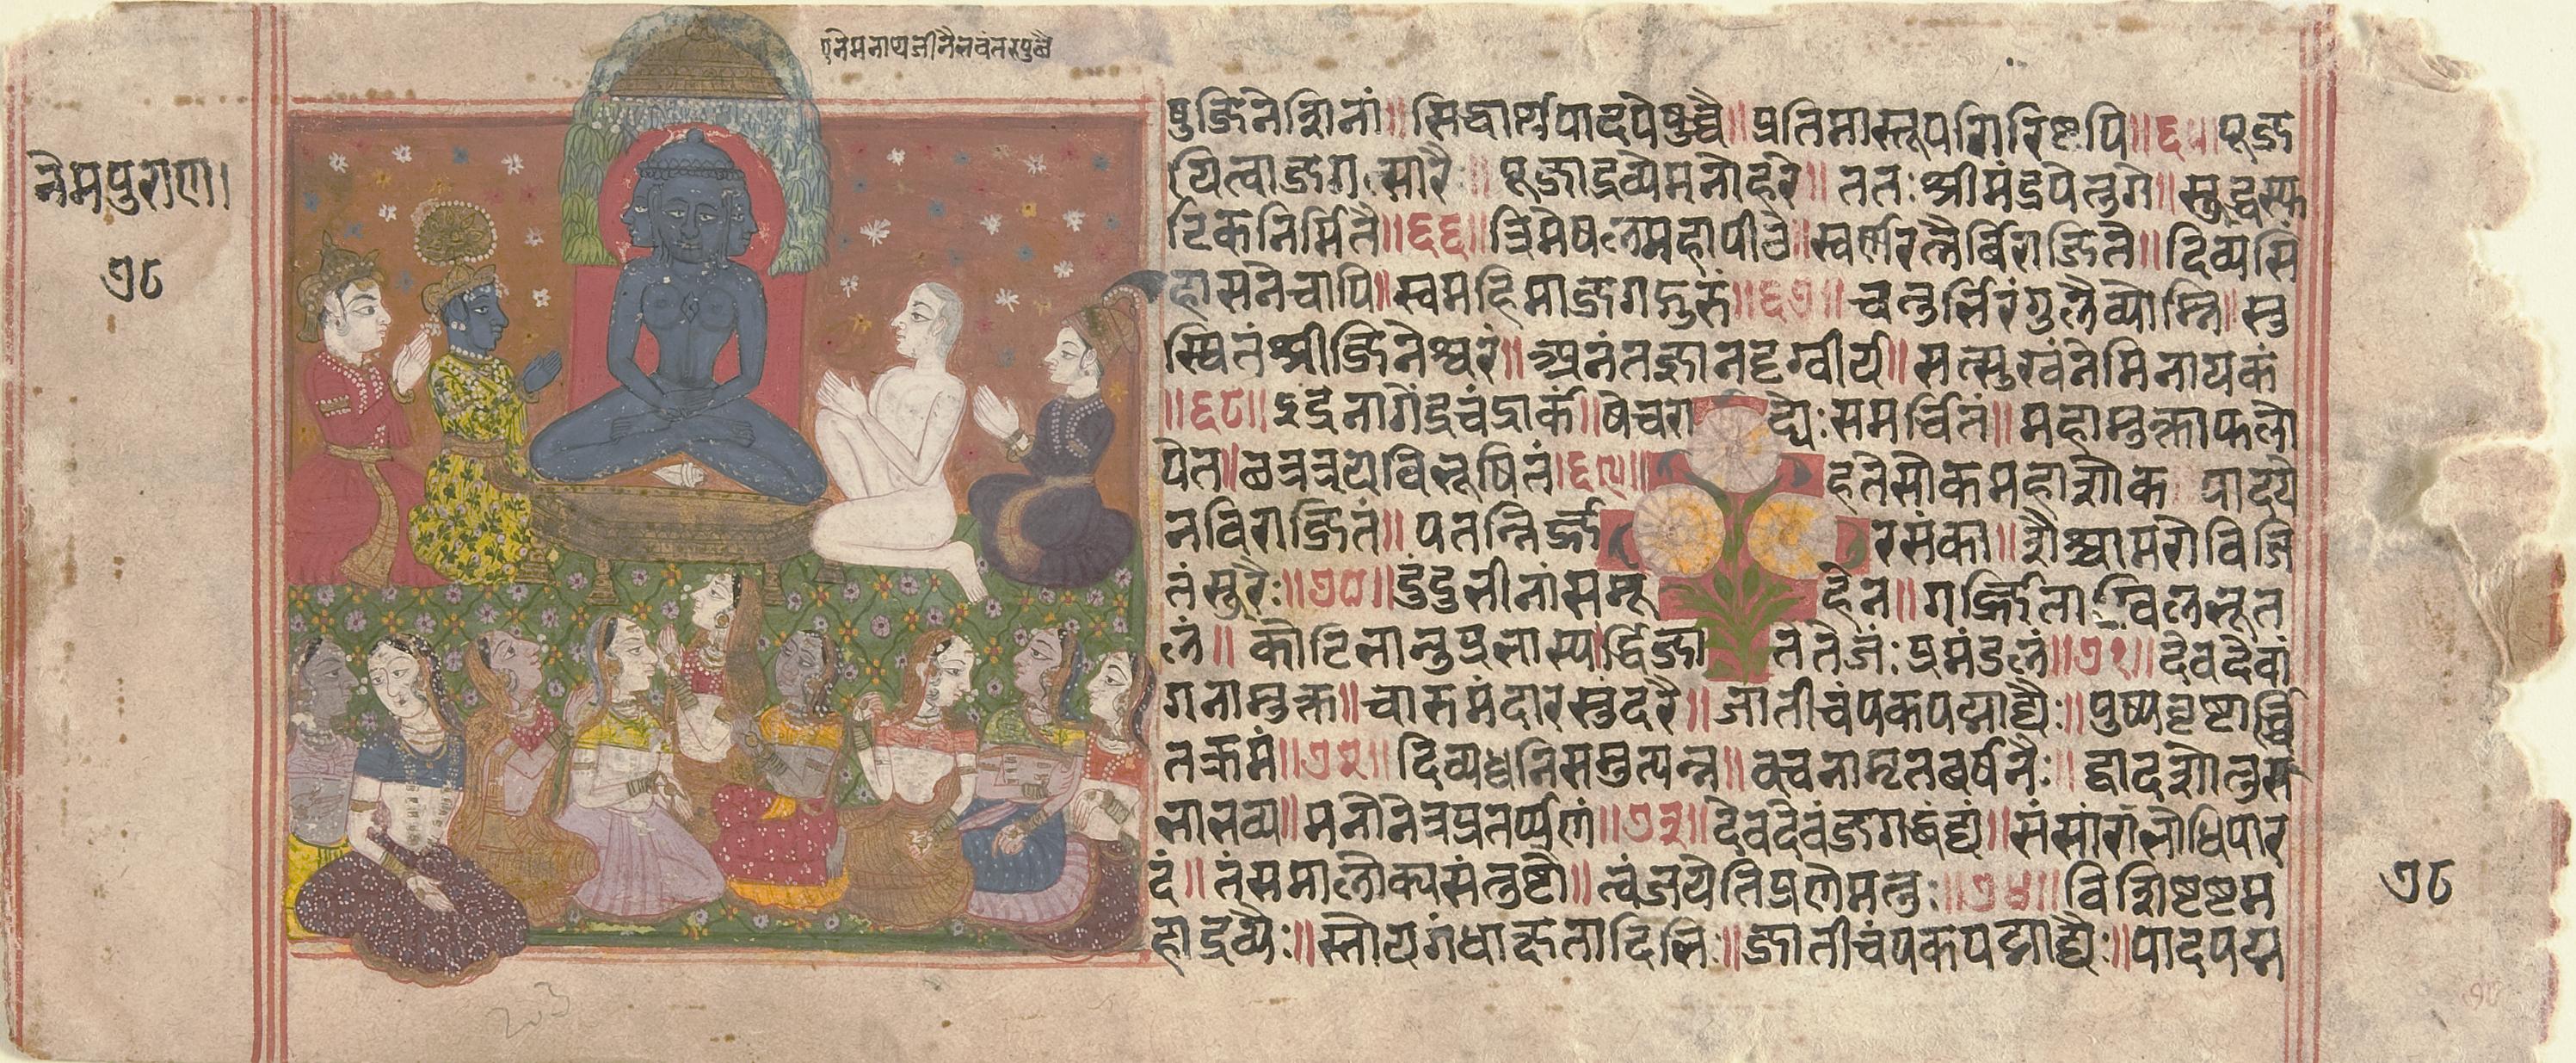 नेमपुराण।
७८
पुजिनेशिनां॥ सिद्धार्थपादपेषुच्चै॥ प्रतिमास्तूपशिरिष्टपि॥६५॥पूज
यित्वाजगत्सारै॥ पूजाद्रव्यैमनोहरै॥ ततःश्रीमंद्रपेतुगे॥ स्तुद्धस्फ
टिकनिर्मितै॥६६॥त्रिमेषलमहापीठे॥स्वर्णरत्नैर्बिराजितै॥ दिव्यसिं
हासनेचापि॥स्वमहिमाजगद्गुरुं॥६७॥ चतुर्भिरंगुलैव्योम्नि॥स्तु
स्थितंश्रीजिनेश्वरं॥ अनंतज्ञानदृग्वीर्य॥सत्सुखंनेमिनायकं
॥६८॥इंद्रनागेंद्रचंद्रार्क॥षेचराद्यैःसमर्चितं॥महामुक्ताफलो
पेत॥छत्रत्रयविभूषितं॥६९॥हतसोकमहाशोक पादये
नविराजितं॥ पतन्निर्ज्झरसंका॥शैश्चामरोविजि
तंसुरैः॥७०॥दुंदुभीनांसमूहेन॥गर्जिताखिलभूत
लं॥ कोटिभानुप्रभास्पर्द्धिजाततेजःप्रमंडलं॥७१॥देवदेवां
गनामुक्त॥चारुमंदारसुंदरै॥जातीचंपकपद्माद्यैः॥पुष्पवृष्टार्च्चि
तक्रमं॥७२॥ दिव्यध्वनिसमुत्पन्न॥वचनामृतबर्षनैः॥ द्वादशोतुस
भाभव्य॥मनोनेत्रप्रतर्प्पणं॥७३॥देवदेवंजगद्वंद्यं॥संसारांभोधिपार
दं॥तंसमालोक्यसंतुष्टौ॥त्वंजयेतिप्रणेमतुः॥७४॥विशिष्टष्टम
हाद्रव्यैः॥स्तोयगंधाक्षतादिभिः॥जातीचंपकपद्माद्यैः॥पादपद्म
७८